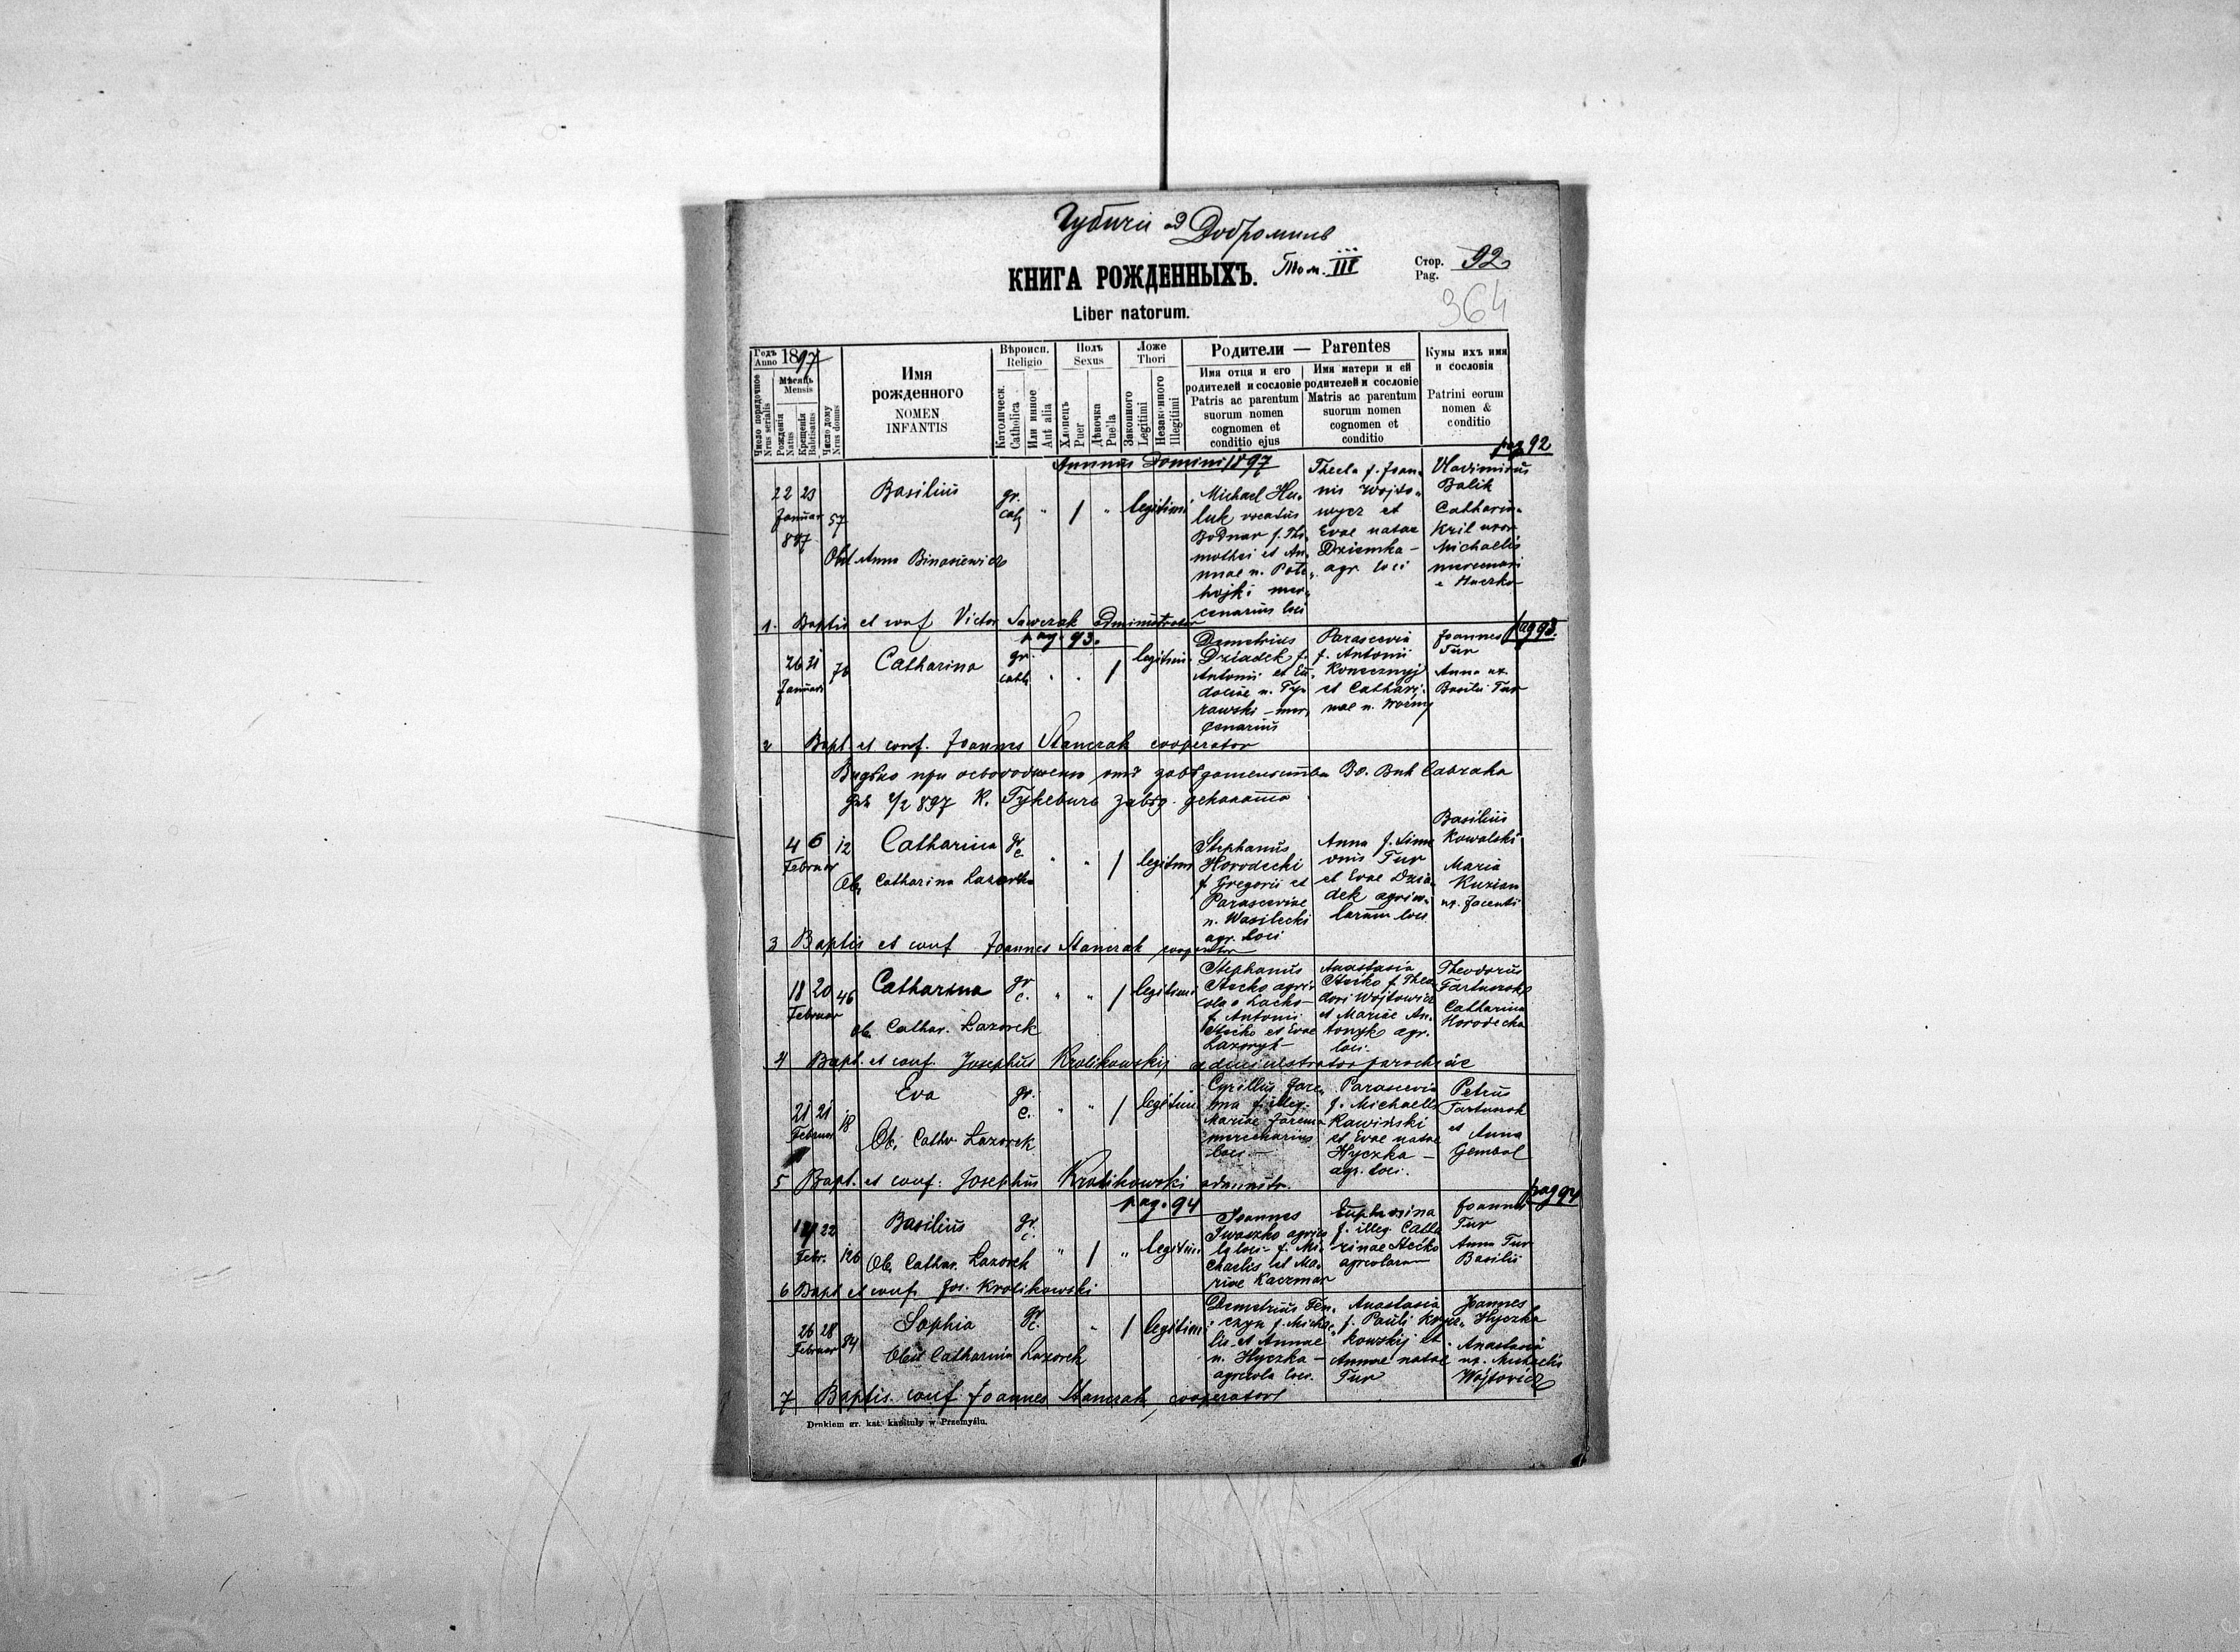 Губичи ад Добромиль
КНИГА РОЖДЕННЫХЪ. Том. III
Стор. Pag. 92
364
Liber natorum.
Годъ Anno 1897
Число порядочное Nrus serialis
Мѣсяць Mensis
Рожденія Natus
Крещенія Babtisatus
Число дому Nrus domus
Имя рожденного
NOMEN INFANTIS
Вѣроисп. Religio
Католическ. Catholica
Или инное Aut alia
Полъ Sexus
Хлопецъ Puer
Дѣвочка Puella
Ложе Thori
Законного Legitimi
Незаконного Illegitimi
Родители — Parentes
Имя отця и его родителей и сословіе
Patris ac parentum suorum nomen cognomen et conditio ejus
Имя матери и ей родителей и сословіе
Matris ac parentum suorum nomen cognomen et conditio
Кумы ихъ имя и сословія
Patrini eorum nomen & conditio
Annus Domini 1897
pag 92
22 23 Januar 897 57
Basilius
gr. cath
" / "
legitimi
Michael Hu-
luk vocatus
Bodnar f. Thi-
mothei et An-
nae n.
mer-
cenarius loci
Thecla f. Joan-
nis Wojto-
wycz et
Evae natae
Dziemka –
agr. loci
Vladimirus
Balik
Catharina
Kril uxor
Michaelis
mercenarii
e Huczko
Obst Anna Binasiewicz
1. Baptis et conf Victor Sawczak Administrator
pag. 93.
pag 93.
26 31 Januar 76
Catharina
gr. cath.
" " /
legitimi
Demetrius
Dziadek f.
Antonii et Eu-
dociae n. Ty-
rawski – mer-
cenarius
Parascevia
f. Antonii
Konecznyj
et Cathari-
nae n. Wozny
Joannes
Tur
Anna ux.
Basilii Tur
2 Bapt. et conf. Joannes Stanczak cooperator
Видѣно при освобожденю отъ завѣдательства Во. Вик Савчака
дня 4/2 897 К. завѣд. деканата
4 6 Februar 12
Catharina
gr. c.
" " /
legitimi
Stephanus
Horodecki
f. Gregorii et
Parasceviae
n. Wasilecki
agr. loci
Anna f. Sime-
onis Tur
et Evae Dzia-
dek agrico-
larum loci
Basilius
Kowalski
Maria
Kuzian
ux. Jacenti
Ob. Catharina Lazorek
3 Baptis et conf Joannes Stanczak cooperator
18 20 Februar 46
Catharina
gr. c.
" " /
legitimi
Stephanus
Stecko agri-
cola e Lacko –
f. Antonii
Stecko et Evae
Lazoryk –
Anastasia
Stecko f. Theo-
dori Wojtowicz
et Mariae An-
tonyk agr.
loci.
Theodorus
Fartuszok
Catharina
Horodecka
Ob. Cathar. Lazorek
4 Bapt. et conf. Josephus Krolikowskij administrator parochiae
21 21 Februar 18
Eva
gr. c.
" " /
legitimi
Cyrillus Jare-
ma f. illeg.
Mariae Jarema
mercenarius
loci. –
Parascevia
f. Michaelis
Rawiński
et Evae natae
Hyczka –
agr. loci.
Petrus
Fartuszok
et
Anna
Gembal
Ob. Cathr. Lazorek
5 Bapt. et conf: Josephus Krolikowski administr.
pag. 94
pag 94
22 Febr. 126
Basilius
gr. c.
" / "
legitimi
Joannes
Iwaszko agrico-
la loci – f. Mi-
chaelis et Ma-
riae Kaczmar
Euphrosina
f. illeg. Catha-
rinae Stecko
agricolarum
Joannes
Tur
Anna Tur
Basilii
Ob. Cathar. Lazorek
6 Bapt et conf. Jos. Krolikowski
26 28 Februar 84
Sophia
gr. c.
" /
legitimi
Demetrius Fen-
czyn f. Michae-
lis et Annae
n. Hyczka –
agricola loci.
Anastasia
f. Pauli
kowskij et
Annae natae
Tur
Joannes
Hyczka
Anastasia
ux. Michaelis
Wojtowicz
Obst Catharina Lazorek
7 Baptis. conf Joannes Stanczak, cooperator
Drukiem gr. kat. kapituły w Przemyślu.